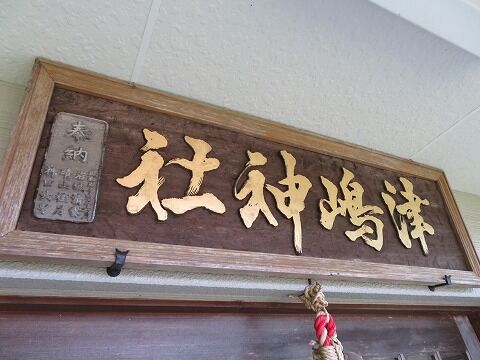 津嶋神社
奉納